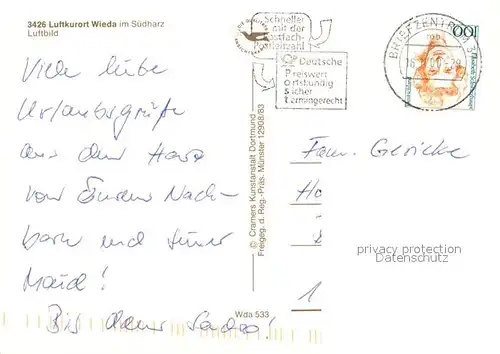 3426 Luftkurort Wieda im Südharz
Luftbild
Viele liebe
Urlaubsgrüße
aus dem Harz
von Eurem Nach-
barn und seiner
Maid!
Bis dann
Schneller
mit der
Postfach-
Postleitzahl
Deutsche
Preiswert
Ortskundig
Sicher
Termingerecht
BRIEFZENTRUM
100
© Cramers Kunstanstalt Dortmund
Freigeg. d. Reg.-Präs. Münster 12908/83
Wda 533
Fam. Gericke
privacy protection
Datenschutz